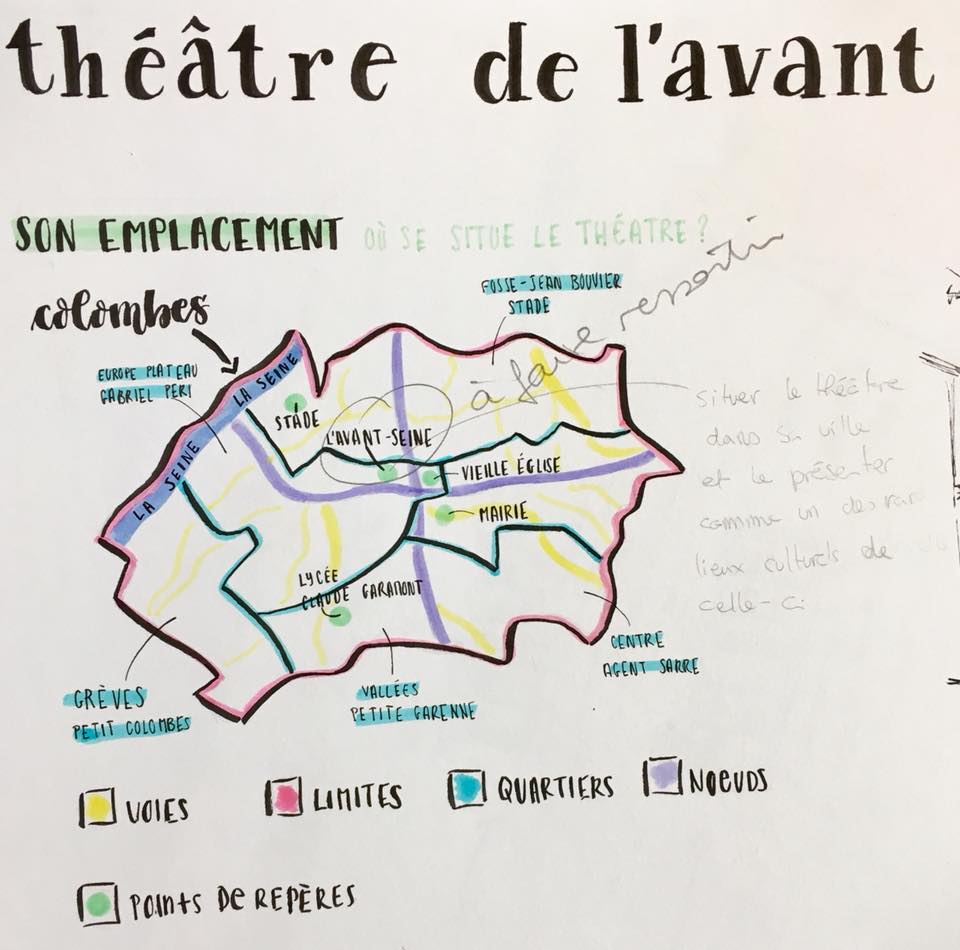 théâtre de l'avant
SON EMPLACEMENT OÙ SE SITUE LE THÉATRE ?
à faire ressortir
colombes
FOSSE-JEAN BOUVIER
STADE
EUROPE PLATEAU
GABRIEL PERI
LA SEINE
LA SEINE
STADE
L'AVANT-SEINE
VIEILLE ÉGLISE
MAIRIE
LYCÉE
CLAUDE GARAMONT
situer le théâtre
dans sa ville
et le présenter
comme un des rares
lieux culturels de
celle-ci
CENTRE
AGENT SARRE
GRÈVES
PETIT COLOMBES
VALLÉES
PETITE GARENNE
VOIES
LIMITES
QUARTIERS
NOEUDS
POINTS DE REPÈRES